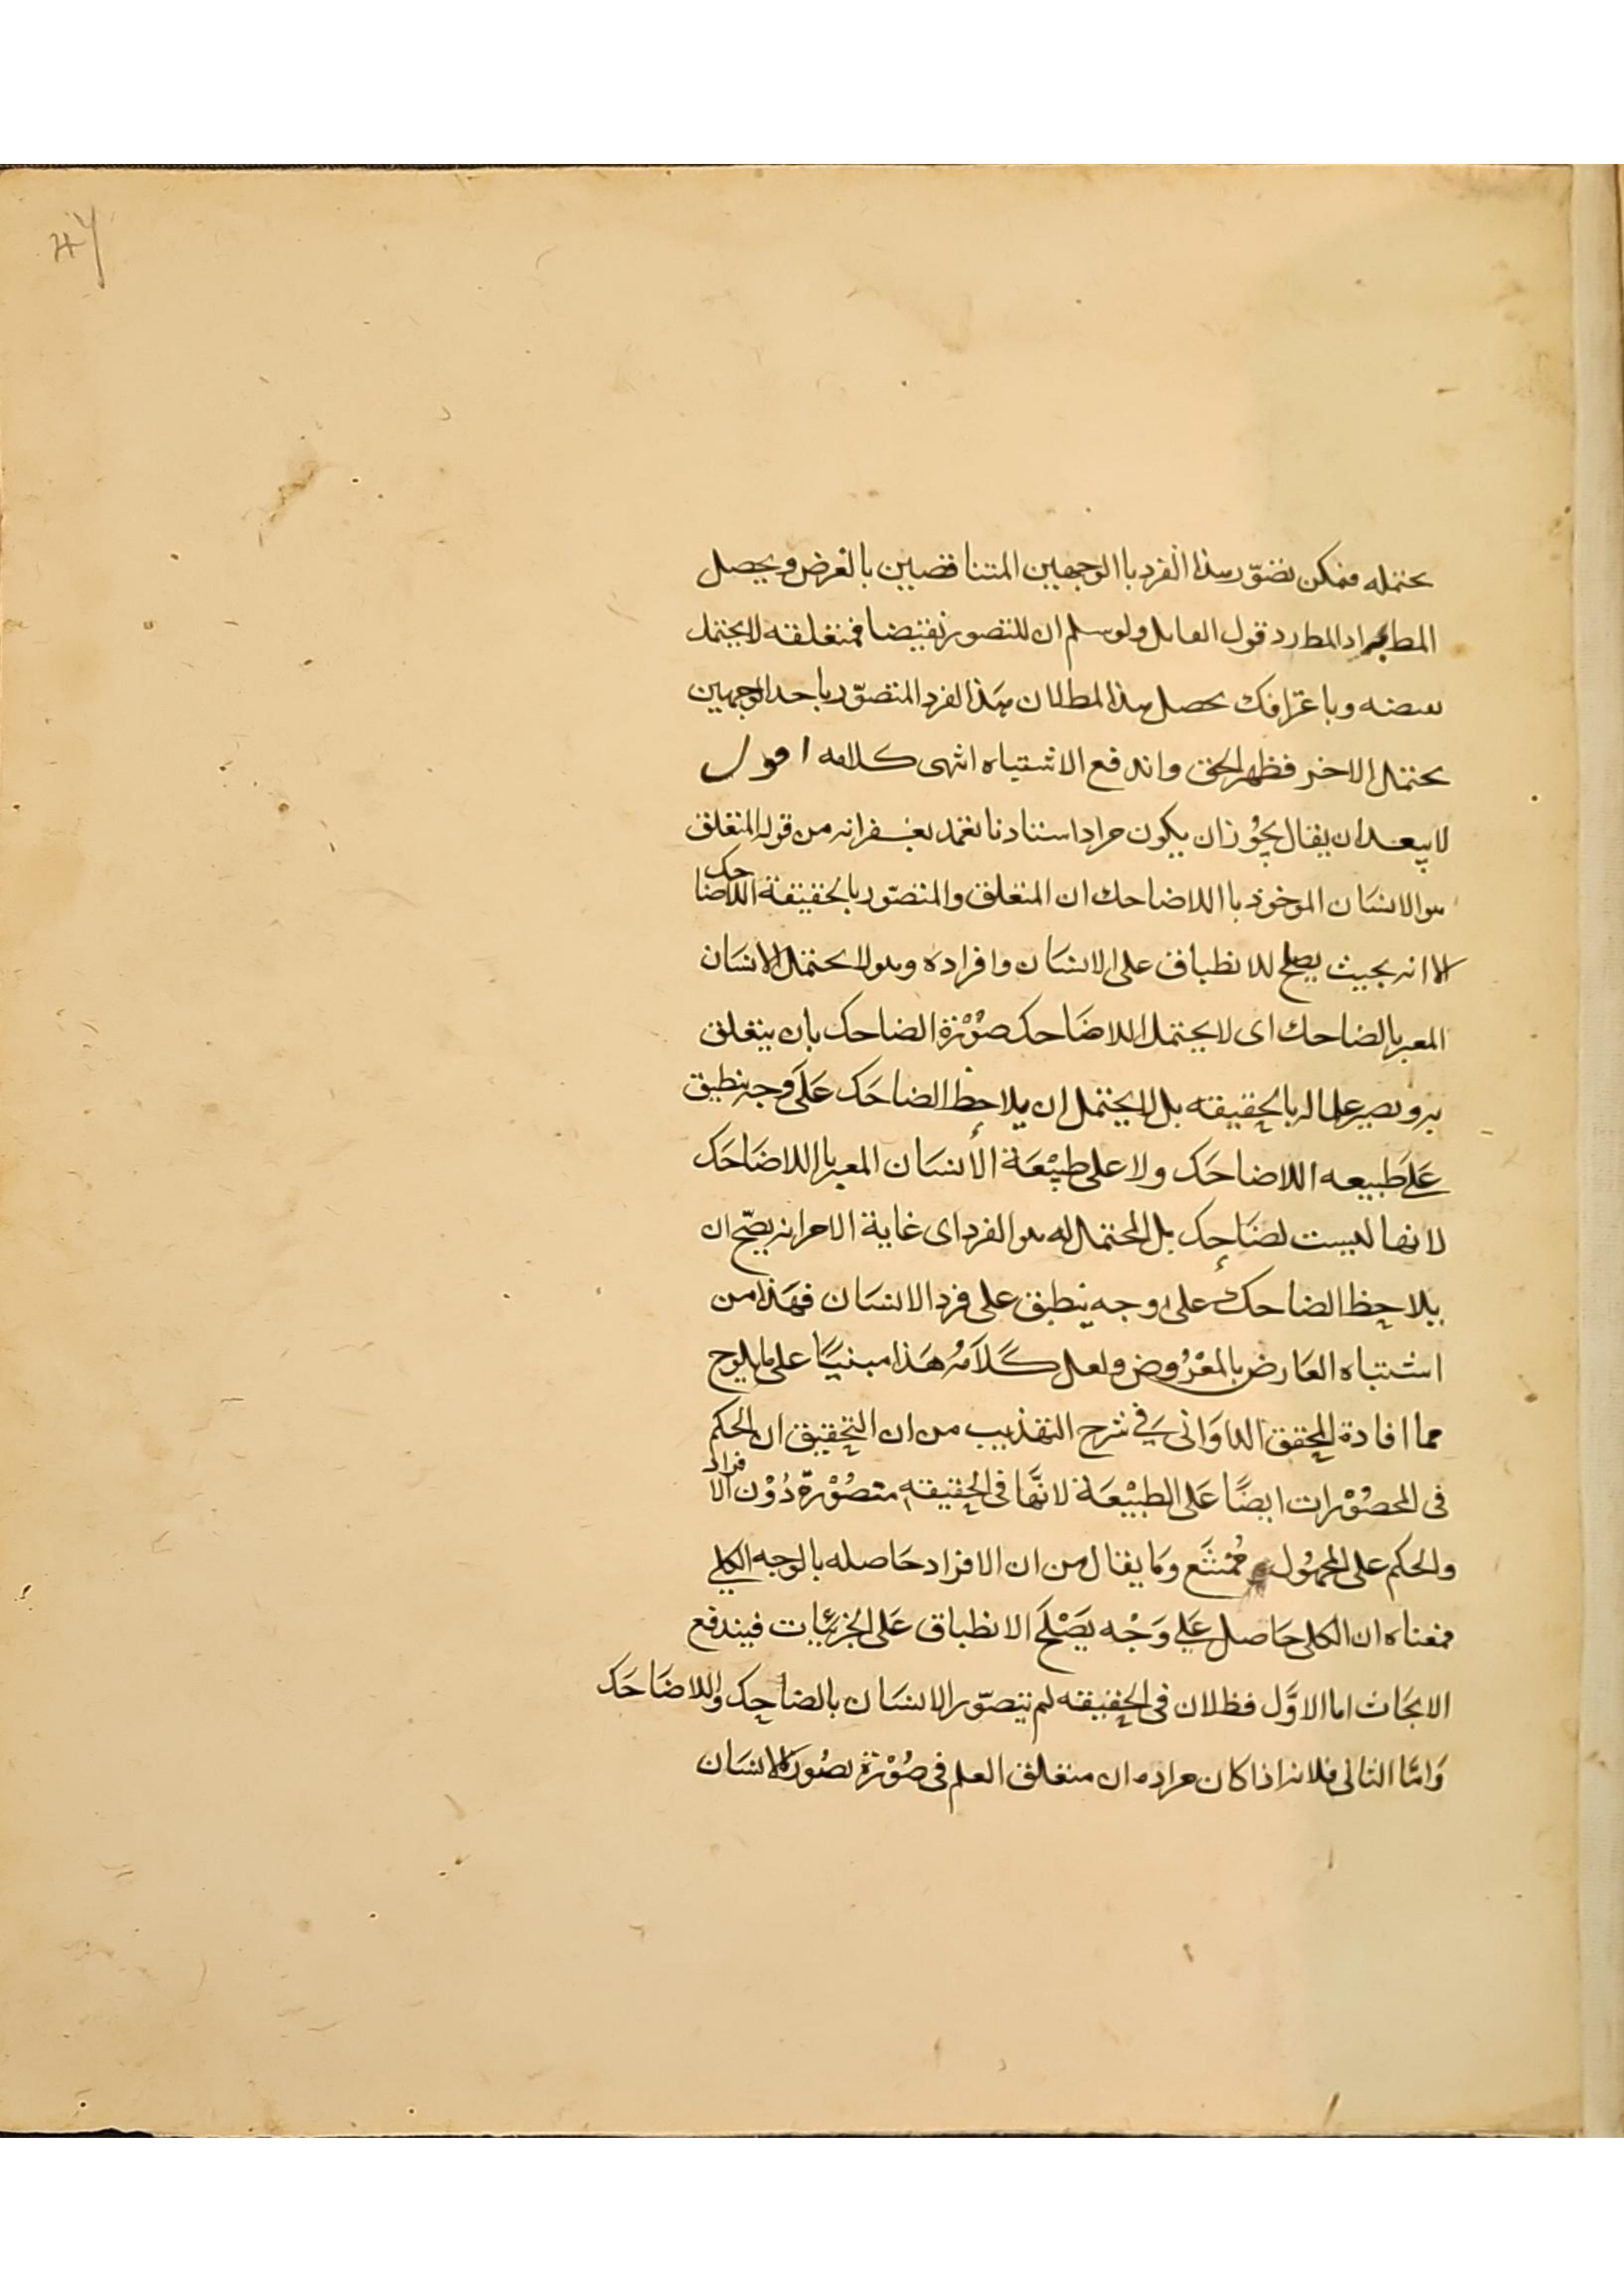 ٤٧
يحتمله فيمكن تصوّر هذا الفرد باالوجهين المتناقضين بالغرض ويحصل
المط المطارد قول القائل ولو سلم ان للتصور نقيضا فمتعلقه لا يحتمل
نقيضه وباعترافك يحصل هذا المط لان هذا الفرد المتصوّر باحد الوجهين
يحتمل الاخر فظهر الحق واندفع الاشتباه انتهى كلامه اقول
لا يبعد ان يقال يجوز ان يكون مراد استادنا تغمد بغفرانه من قوله المتعلق
هو الانسان الموخوذ باللاضاحك ان المتعلق والمتصوّر بالحقيقة اللاضاحك
الا انه بحيث يصلح للانطباق على الانسان وافراده وهو لا يحتمل الانسان
المعبر بالضاحك اى لا يحتمل اللاضَاحك صُوْرَة الضاحك بان يتعلق
به ويصير علما له بالحقيقته بل لا يحتمل ان يلاحظ الضاحَك عَلَى وجه ينطبق
عَلَى طَبيعه اللاضاحَك ولا على طبيْعَة الأنسَان المعبر باللاضَاحَك
لانها ليست لضَاحِك بل المحتمل له هو الفرد اى غاية الامر انه يصّح ان
يلاحظ الضاحك على وجه ينطبق على فرد الانسَان فهَذا من
اشتباه العَارض بالمعْرُوض ولعل كَلاَمُه هَذا مبنيًا على ما يلوح
مما افادة المحقق الدوَانى فِي شرح التهذيب من ان التحقيق ان الحكم
فى المحصُوْرات ايضًا عَلى الطبيْعَة لانهَّا فى الحقيقه متصُوْرةّ دُوْن الافراد
والحكم على المجهُول مُمْتنَع وَمَا يقال من ان الافراد حَاصله بالوجه الكلي
فمعناه ان الكلى حَاصل عَلى وَجْه يَصْلَح الانطباق عَلى الجُزئيَات فيندفع
الابحَاث اما الاوَّل فظ لان فى الحقيقه لم يتصوّر الانسَان بالضاحِك واللاضَاحَك
وَامَّا الثانى فلانه اذا كان مراده ان متعلق العلم فى صُوْرَة تصُور الانسَان